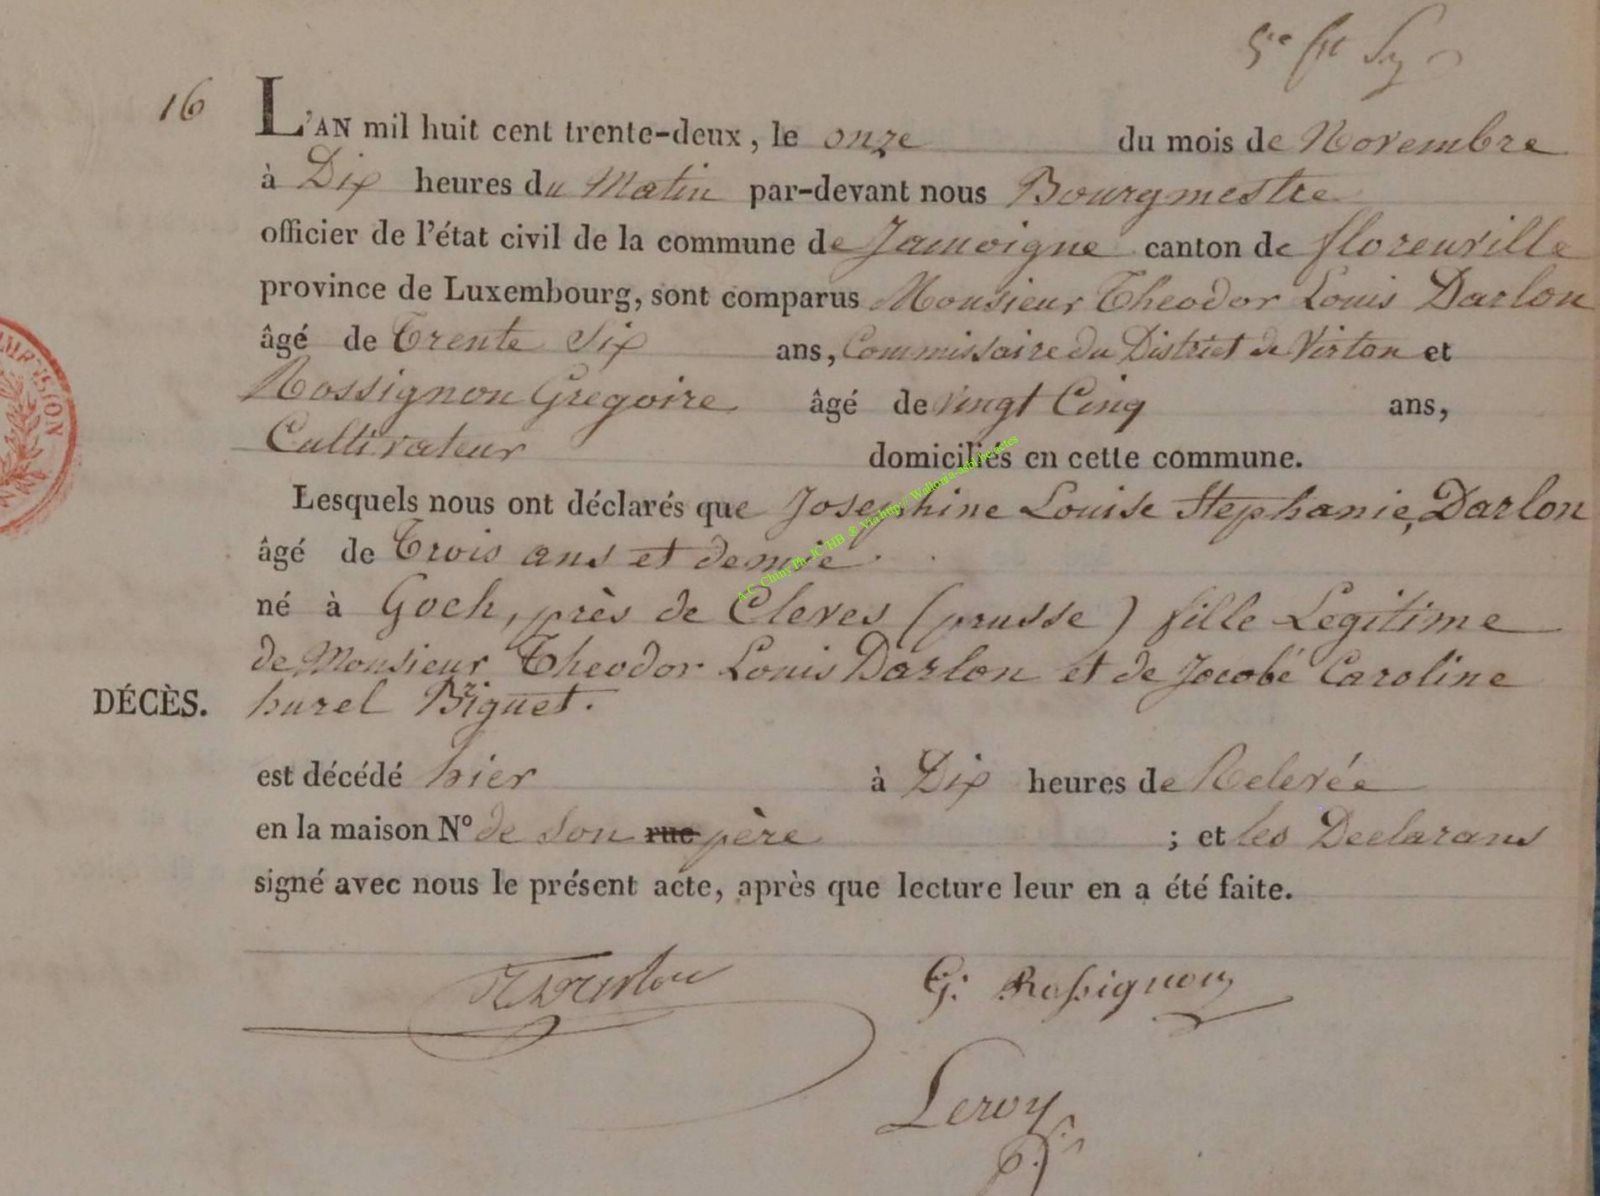 16
L'AN mil huit cent trente-deux, le onze du mois de Novembre
à Dix heures du Matin par-devant nous Bourgmestre
officier de l'état civil de la commune de Jamoigne canton de florenville
province de Luxembourg, sont comparus Monsieur Theodor Louis Darlon
âgé de Trente Six ans, Commissaire du District de Virton et
Rossignon Gregoire âgé de vingt Cinq ans,
Cultivateur domiciliés en cette commune.
Lesquels nous ont déclarés que Josephine Louise Stephanie, Darlon
âgé de Trois ans et demie
né à Goch, près de Cleves (prusse) fille Legitime
de Monsieur Theodor Louis Darlon et de Jacobé Caroline
DÉCÈS. hurel Briguet.
est décédé hier à Dix heures de Relevée
en la maison N° de Son rue père ; et les Declarans
signé avec nous le présent acte, après que lecture leur en a été faite.
G: Rossignon
Leroy